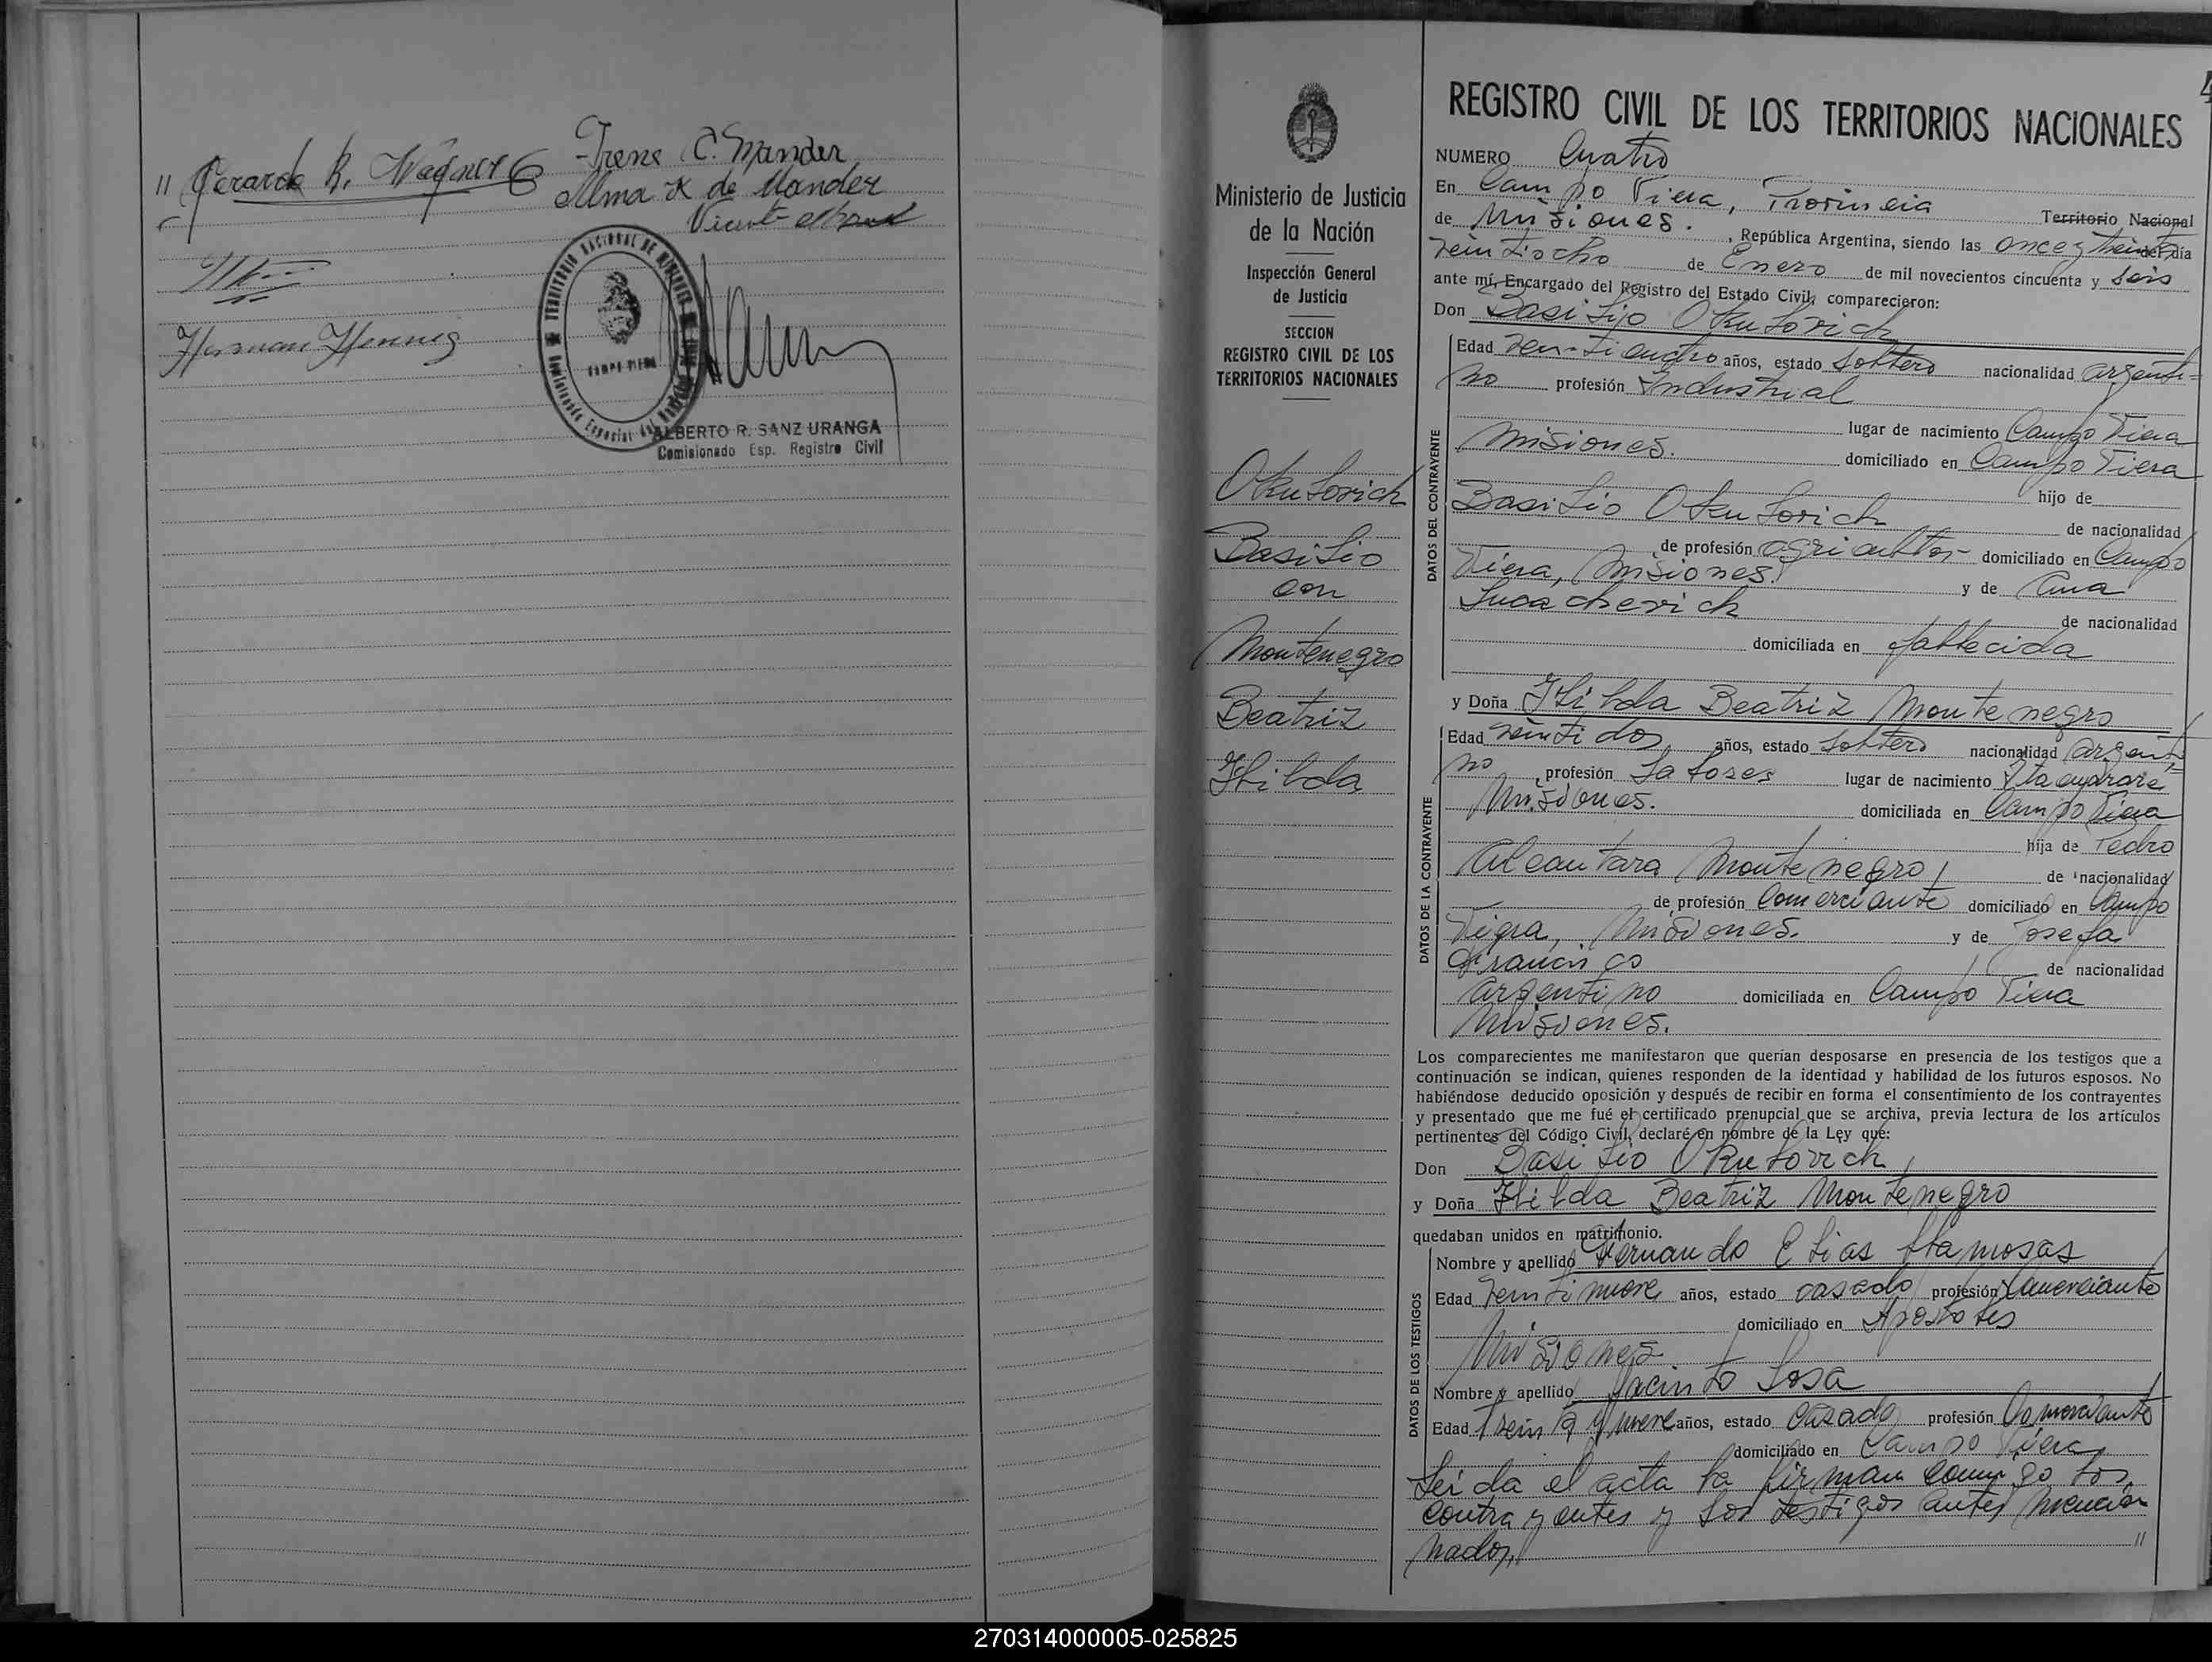 " Gerardo R. Wagner
Irene C. Mander
Alma K de Mander
Herman Hennig
TERRITORIO NACIONAL DE MISIONES
CAMPO VIERA
ALBERTO R. SANZ URANGA
Comisionado Esp. Registro Civil
4
Ministerio de Justicia
de la Nación
Inspección General
de Justicia
SECCION
REGISTRO CIVIL DE LOS
TERRITORIOS NACIONALES
Okulovich
Basilio
con
Montenegro
Beatriz
Hilda
REGISTRO CIVIL DE LOS TERRITORIOS NACIONALES
NUMERO Cuatro
En Campo Viera, Provincia Territorio Nacional
de Misiones. , República Argentina, siendo las once y treinta del día
veintiocho de Enero de mil novecientos cincuenta y seis
ante mí, Encargado del Registro del Estado Civil, comparecieron:
Don Basilio Okulovich
DATOS DEL CONTRAYENTE
Edad veinticuatro años, estado soltero nacionalidad argenti-
no profesión Industrial
lugar de nacimiento Campo Viera
Misiones. domiciliado en Campo Viera
hijo de
Basilio Okulovich de nacionalidad
de profesión agricultor domiciliado en Campo
Viera, Misiones. y de Ana
Lucachevich de nacionalidad
domiciliada en fallecida
y Doña Hilda Beatriz Montenegro
DATOS DE LA CONTRAYENTE
Edad veintidos años, estado soltero nacionalidad argenti-
no profesión Labores lugar de nacimiento Itacuararé
Misiones. domiciliada en Campo Viera
hija de Pedro
Alcantara Montenegro, de nacionalidad
de profesión Comerciante domiciliado en Campo
Viera, Misiones. y de Josefa
de nacionalidad
argentino domiciliada en Campo Viera
Misiones.
Los comparecientes me manifestaron que querían desposarse en presencia de los testigos que a
continuación se indican, quienes responden de la identidad y habilidad de los futuros esposos. No
habiéndose deducido oposición y después de recibir en forma el consentimiento de los contrayentes
y presentado que me fué el certificado prenupcial que se archiva, previa lectura de los artículos
pertinentes del Código Civil, declaré en nombre de la Ley que:
Don Basilio Okulovich,
y Doña Hilda Beatriz Montenegro
quedaban unidos en matrimonio.
DATOS DE LOS TESTIGOS
Nombre y apellido Fernando Elias Llamosas
Edad veintinueve años, estado casado profesión Comerciante
domiciliado en Apostoles
Misiones
Nombre y apellido Jacinto Sosa
Edad Treinta y nueve años, estado casado profesión Comerciante
domiciliado en Campo Viera
Leida el acta la firman conmigo los
contrayentes y los testigos antes mencio
nados, "
270314000005-025825